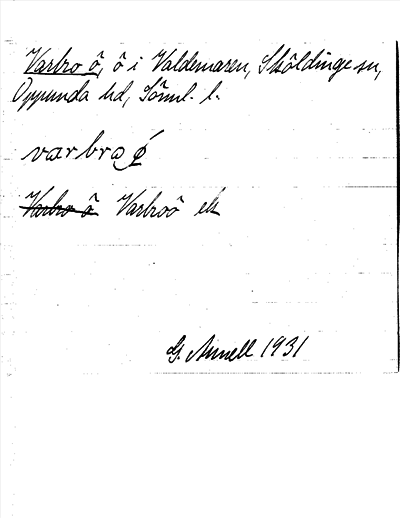 Varbro ö, ö i Valdemaren, Sköldinge sn,
Oppunda hd, Söml. l.
varbro ǫ́
Varbro ö Varbroö ek
G. Annell 1931